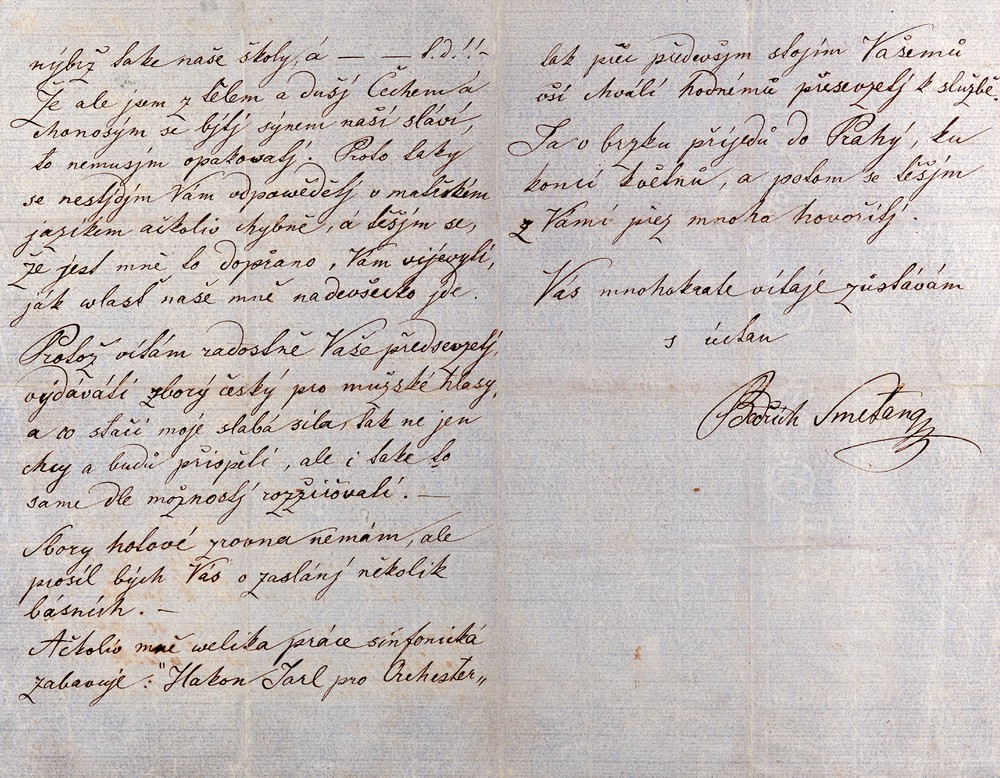 nýbrž take naše školy, á — — t.d.!!-
Že ale jsem z tělem a dušj Čechem á
chonosým se bjtj sýnem naší sláví,
to nemusjm opakowatj. Proto taky
se nestjdjm Vám odpowědětj v mateřském
jazikem ačkoliv chybně, á těšjm se,
že jest mně to dopřano, Vám vijeviti,
ják wlasť naše mně nadewšecko jde.
Protož vítám radostně Vaše předsevzetj,
výdáváti zborý český pro mužské hlasy,
a co stačí moje slabá síla, tak ne jen
chcy a budů přispěti, ale i take to
same dle možnostj rozžiřóvati. —
Sbory hotové zrovna nemám, ale
prosil bých Vás o zaslánj několik
básních. —
Ačkoliv mně welika práce sinfonická
zabavuje: "Hakon Jarl pro Orchester„
tak přec předewšjm stojím Vašemů
vší chválí hodnémů přesevzetj k službě.
Ja o brzku přijedů do Prahý, ku
koncí květnů, a potom se těšjm
z Vámí přez mnoha hovořitj.
Vás mnohokrate vítaje zůstávám
s úctau
Bedřich Smetana